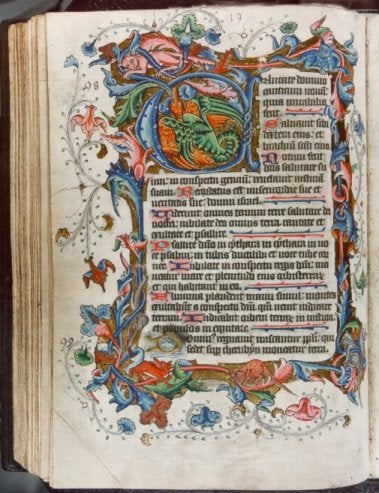 19
98
Cantate domino
canticum novum
quia mirabilia
fecit.
Salvavit sibi
dextera eius: et
brachium scm eius
Notum fecit
dns salutare su
um: in conspectu gencium revelavit iusticiam
suam. Recordatus est misericordie sue et
veritatis sue: domui israel.
Viderunt omnes termini terre salutare dei
nostri: iubilate deo omnis terra cantate et
exultate et psallite.
Psallite dno in cythara in cythara in vo
ce psalmi: in tubis ductilibus et voce tube cor
nee. Iubilate in conspectu regis dni: mo
veatur mare et plenitudo eius orbis terrarum
et qui habitant in eo.
Flumina plaudent manu simul: montes
exultabunt a conspectu dni qm venit iudicare
terram. Iudicabit orbem terrarum in iusticia:
et populos in equitate.
99
Dominus regnavit irascantur ppli: qui
sedet sup cherubyn moveatur terra.